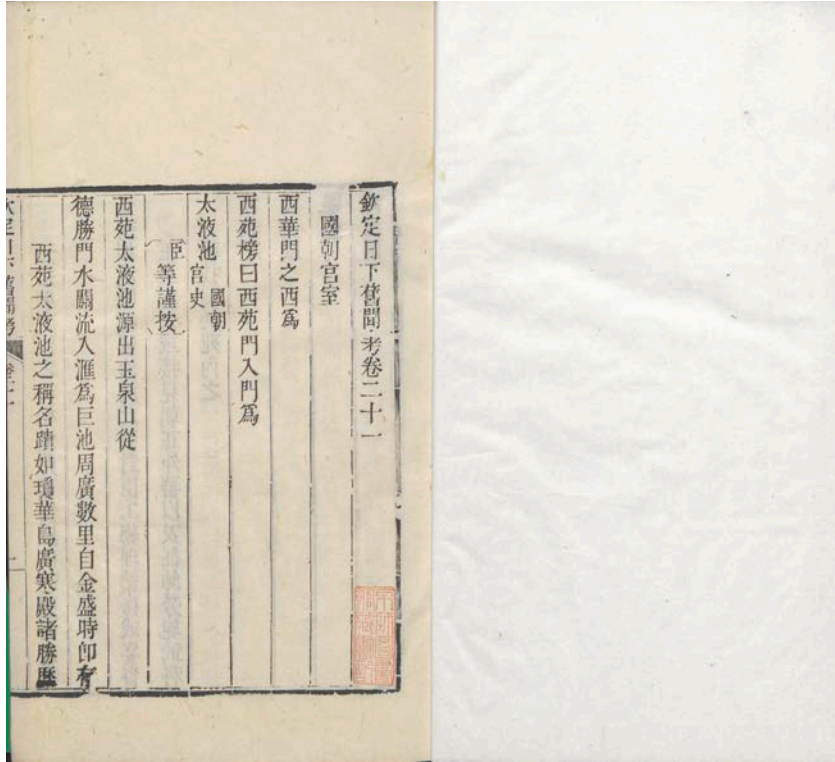 欽定日下舊聞考卷二十一
國朝宮室
西華門之西爲
西苑榜曰西苑門入門爲
太液池 國朝宮史
臣等謹按
西苑太液池源出玉泉山從
德勝門水關流入滙爲巨池周廣數里自金盛時卽有
西苑太液池之稱名蹟如瓊華島廣寒殿諸勝歷
欽定日下舊聞考 卷二十一 一